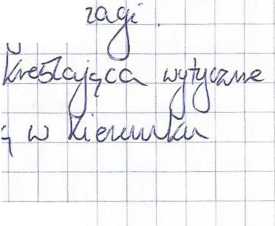 ragi.
kreślająca wytyczne
ą w kierunku